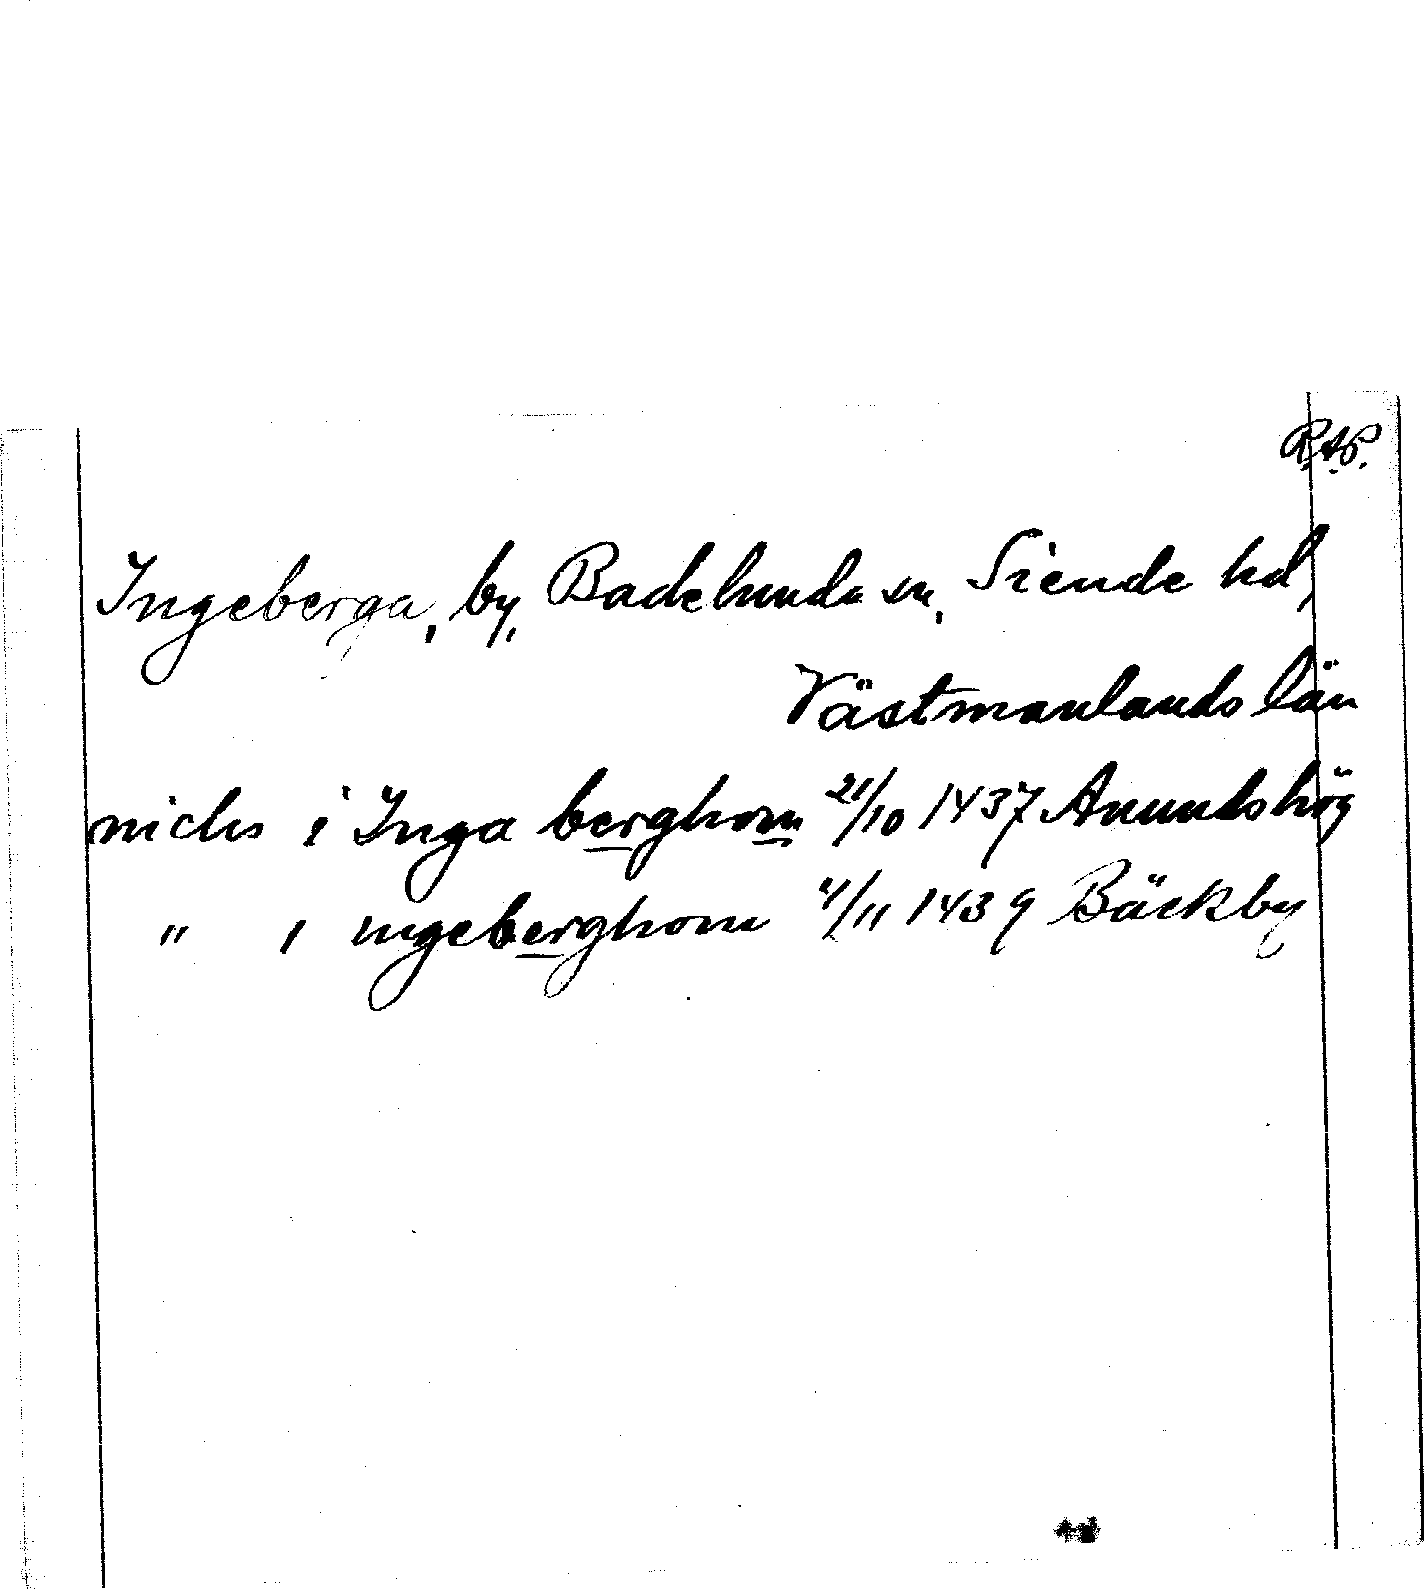 R.A.P.
Ingeberga, by, Badelunda sn, Siende hd,
Västmanlands län
nichs i Inga berghom 21/10 1437 Anundshög
" i ingeberghom 4/11 1439 Bäckby